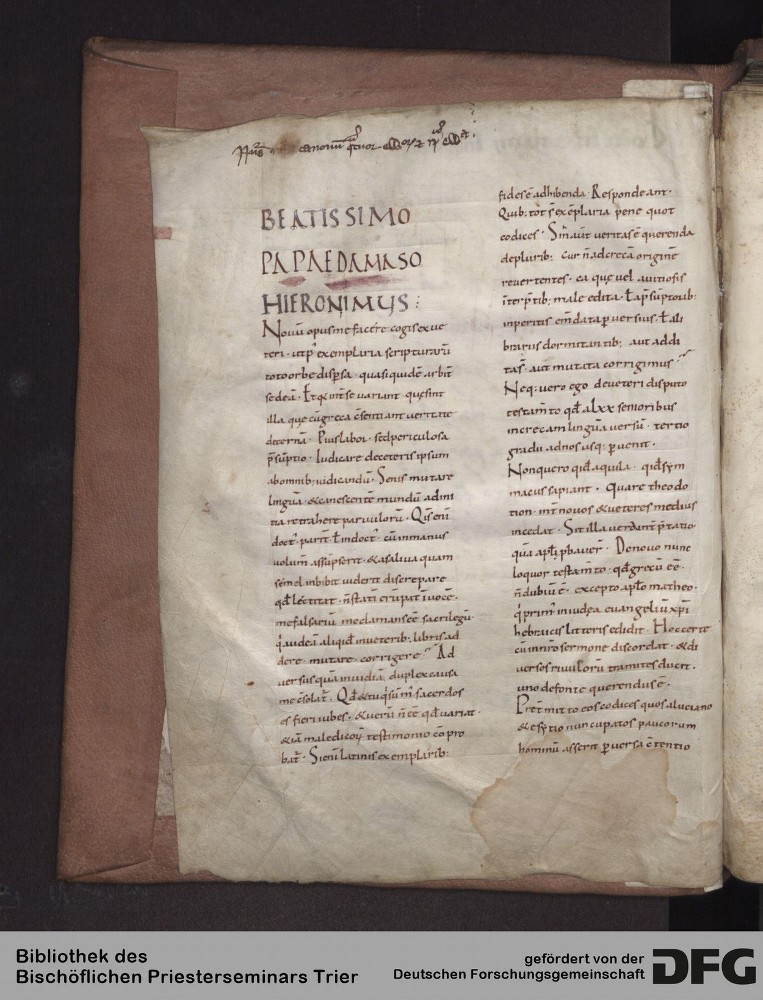 BEATISSIMO
PAPAE DAMASO
HIERONIMUS:
Nouū opus me facere cogis ex ue
teri · ut p̄ exemplaria scripturarū
toto orbe dispsa · quasi quidē arbit̄
sedeā · Et q̨ int̄ se uariant · quę sint
illa quę cū greca c̄sentiant ueritate
decernā · Pius labor · sed periculosa
p̄sūptio · Iudicare de ceteris ipsum
ab omnib; iudicandū · Senis mutare
linguā · & canescentē mundū ad ini
tia retrahere paruulorū · Q̨s enī
doct᾽ parit̄ ł indoct᾽ · cū in manus
uolum̄ assūpserit · & a saliua quam
semel inbibit uiderit discrepare
qđ lectitat · n̄ statī erūpat ī uocē ·
me falsariū me clamans ēē sacrilegū ·
q̇ audeā aliqiđ in ueterib; libris ad
dere · mutare · corrigere · Ad
uersus quā inuidiā · duplex causa
me c̄solat̄ · Qđ & tu q̨ sūm᾽ sacerdos
es fieri iubes · & uerū n̄ ēē qđ uariat ·
& iā maledicoꝝ testimonio cōpro
bat̄ · Si enī latinis exemplarib;
fides ē adhibenda · Respondeant ·
Quib; tot s̄ exēplaria pene quot
codices · Sin̄ aut̄ ueritas ē querenda
de plurib; cur n̄ ad grecā originē
reuertentes · ea quę uel a uitiosis
īterp̄tib; male edita · ł a p̄sūptorib;
inperitis em̄data puersius · ł a li
brariis dormitantib; aut addi
ta s̄ · aut mutata corrigimus
Neq; uero ego de ueteri disputo
testam̄to qđ a lxx senioribus
in grecam linguā uersū · tertio
gradu ad nos usq; puenit ·
Non quero qiđ aquila · qiđ sym
macus sapiant · Quare theodo
tion · int̄ nouos & ueteres medius
incedat · Sit illa uera int̄p̄tatio
quā apłi pbauer̄ · De nouo nunc
loquor testam̄to · qđ grecū ēē ·
n̄ dubiū ē · excepto apło matheo ·
q̇ prim᾽ in iudea euangeliū xp̄i
hebraicis litteris edidit · Hoc certe
cū in n̄ro sermone discordat · & di
uersos riuulorū tramites ducit ·
uno de fonte querendus ē ·
Pret̄mitto eos codices quos a luciano
& esytio nuncupatos paucorum
hominū asserit puersa c̄tentio
Bibliothek des
Bischöflichen Priesterseminars Trier
gefördert von der
Deutschen Forschungsgemeinschaft
DFG